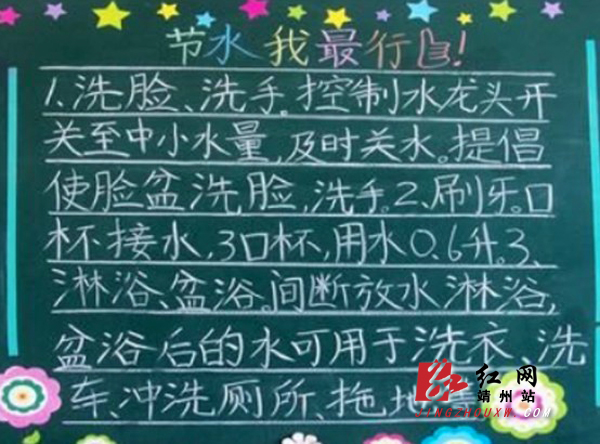 节水我最行!
1、洗脸、洗手。控制水龙头开
关至中小水量,及时关水。提倡
使脸盆洗脸,洗手。2、刷牙。口
杯接水,3口杯,用水0.6升。3、
淋浴、盆浴。间断放水淋浴,
盆浴后的水可用于洗衣、洗
车、冲洗厕所、拖地
红网
靖州站
JINGZHOUXW